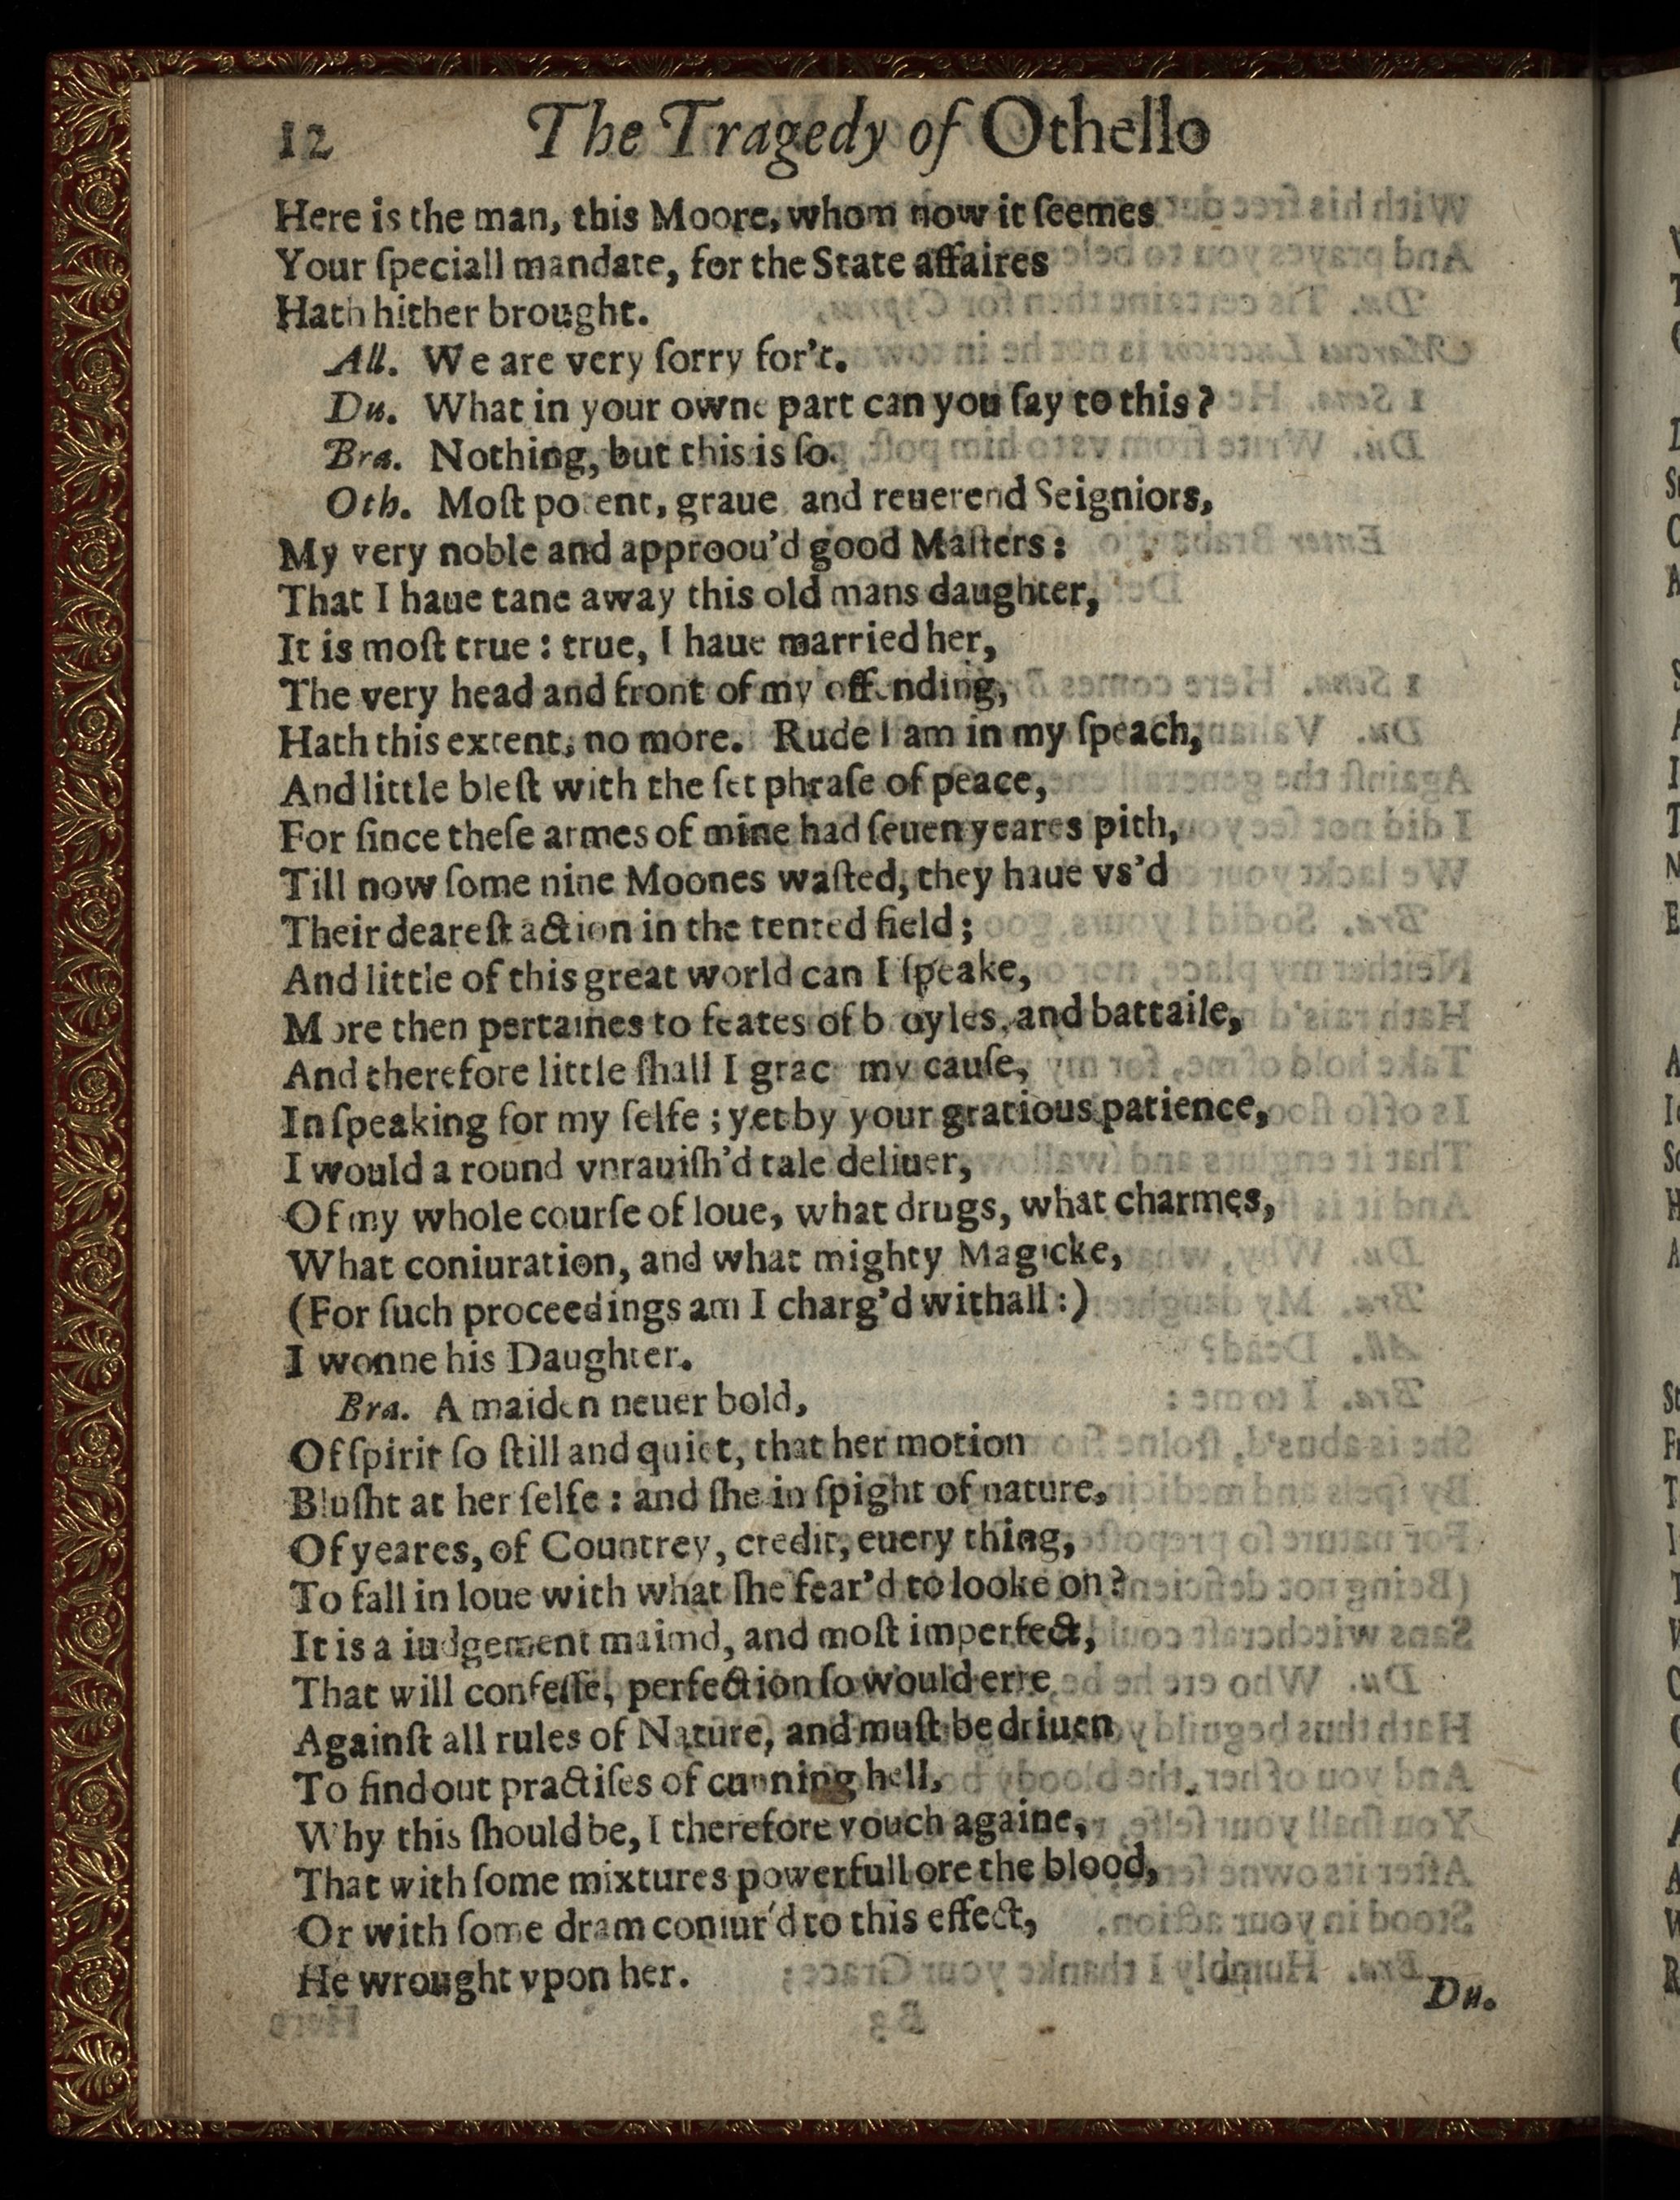 12 The Tragedy of Othello
Here is the man, this Moore, whom now it ſeemes
Your ſpeciall mandate, for the State affaires
Hath hither brought.
All. We are very ſorry for't.
Du. What in your owne part can you ſay to this?
Bra. Nothing, but this is ſo.
Oth. Moſt potent, graue and reuerend Seigniors,
My very noble and approou'd good Maſters:
That I haue tane away this old mans daughter,
It is moſt true: true, I haue married her,
The very head and front of my offending,
Hath this extent, no more. Rude I am in my ſpeach,
And little bleſt with the ſet phraſe of peace,
For ſince theſe armes of mine had ſeuen yeares pith,
Till now ſome nine Moones waſted, they haue vs'd
Their deareſt action in the tented field;
And little of this great world can I ſpeake,
More then pertaines to feates of broyles, and battaile,
And therefore little ſhall I grace my cauſe,
In ſpeaking for my ſelfe; yet by your gratious patience,
I would a round vnrauiſh'd tale deliuer,
Of my whole courſe of loue, what drugs, what charmes,
What coniuration, and what mighty Magicke,
(For ſuch proceedings am I charg'd withall:)
I wonne his Daughter.
Bra. A maiden neuer bold,
Of ſpirit ſo ſtill and quiet, that her motion
Bluſht at her ſelfe: and ſhe in ſpight of nature,
Of yeares, of Countrey, credit, euery thing,
To fall in loue with what ſhe fear'd to looke on?
It is a iudgement maimd, and moſt imperfect,
That will confeſſe, perfection ſo would erre
Againſt all rules of Nature, and muſt be driuen
To find out practiſes of cunning hell,
Why this ſhould be, I therefore vouch againe,
That with ſome mixtures powerfull ore the blood,
Or with ſome dram coniur'd to this effect,
He wrought vpon her.
Du.